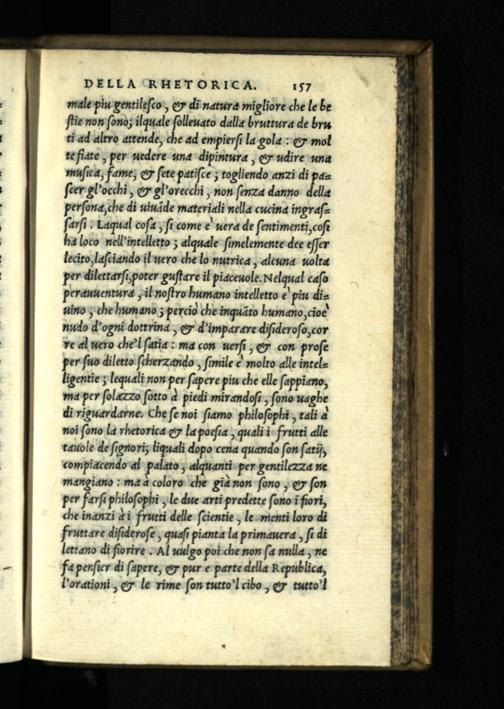 DELLA RHETORICA. 157
male piu gentilesco, & di natura migliore che le be
stie non sono; ilquale solleuato dalla bruttura de bru
ti ad altro attende, che ad empiersi la gola: & mol
te fiate, per uedere una dipintura, & udire una
musica, fame, & sete patisce; togliendo anzi di pa=
scer gl'occhi, & gl'orecchi, non senza danno della
persona, che di uiuāde materiali nella cucina ingras=
sarsi. Laqual cosa, si come e' uera de sentimenti, cosi
ha loco nell'intelletto; alquale simelemente dee esser
lecito, lasciando il uero che lo nutrica, alcuna uolta
per dilettarsi, poter gustare il piaceuole. Nelqual caso
perauuentura, il nostro humano intelletto e' piu di=
uino, che humano; perciò che inquāto humano, cioe'
nudo d'ogni dottrina, & d'imparare disideroso, cor
re al uero che'l satia: ma con uersi, & con prose
per suo diletto scherzando, simile e' molto alle intel=
ligentie; lequali non per sapere piu che elle sappiano,
ma per solazzo sotto à piedi mirandosi, sono uaghe
di riguardarne. Che se noi siamo philosophi, tali à
noi sono la rhetorica & la poesia, quali i frutti alle
tauole de signori; liquali dopo cena quando son satij,
compiacendo al palato, alquanti per gentilezza ne
mangiano: ma à coloro che già non sono, & son
per farsi philosophi, le due arti predette sono i fiori,
che inanzi à i frutti delle scientie, le menti loro di
fruttare disiderose, quasi pianta la primauera, si di
lettano di fiorire. Al uulgo poi che non sa nulla, ne
fa pensier di sapere, & pur e parte della Republica,
l'orationi, & le rime son tutto'l cibo, & tutto'l